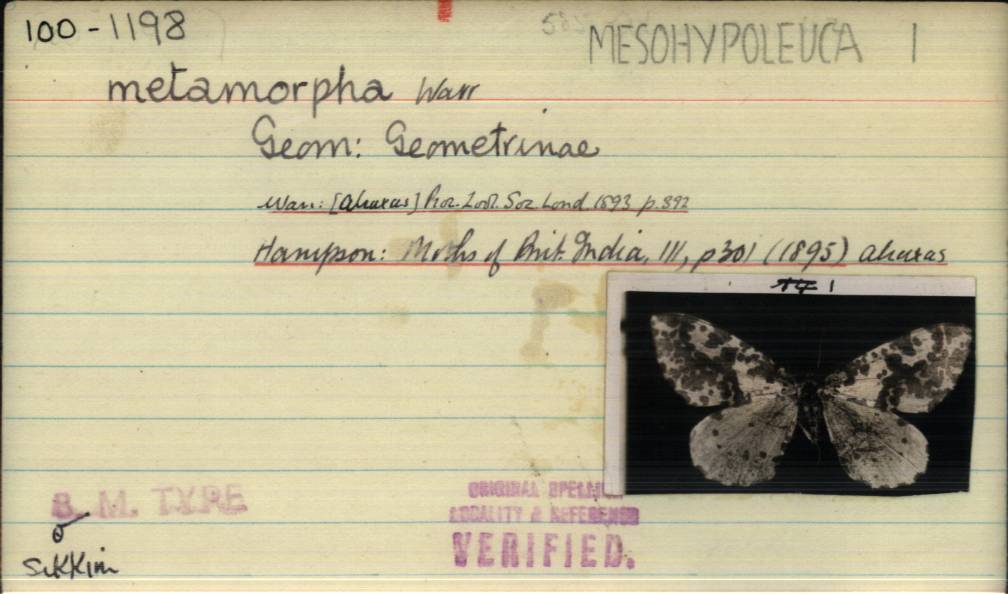 100-1198
MESOHYPOLEUCA 1
metamorpha Warr
Geom: Geometrinae
Warr: [Abraxas] Proc. Zool. Soc. Lond. 1893 p.392
Hampson: Moths of Brit. India, III, p301 (1895) Abraxas
1
B. M. TYPE
♂
Sikkim
ORIGINAL SPELLING
LOCALITY & REFERENCE
VERIFIED.